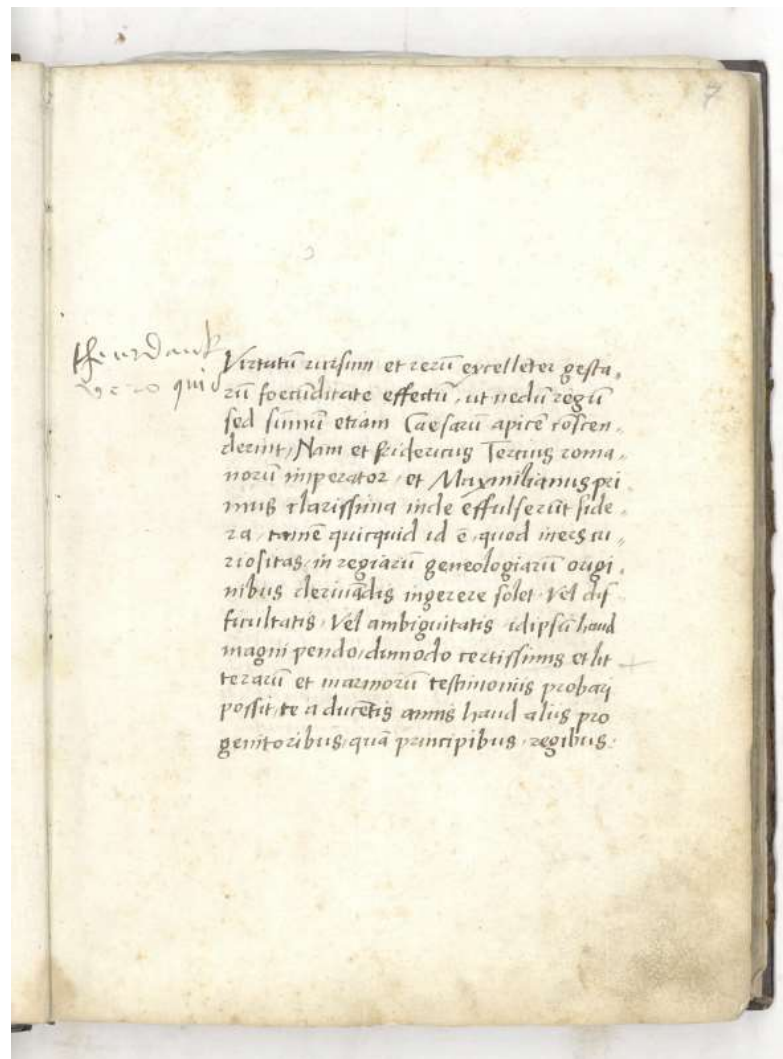 7
theurdank
qui
Virtutū rursum et rerū excellēter gesta„
rū foecūditate effectū, ut nedū regū
sed sūmū etiam Caesarū apicē cōscen„
derint, Nam et fridericus Tercius roma„
norū imperator, et Maxmilianus pri
mus clarissima inde effulserūt side„
ra, tamē quicquid id ē, quod iners cu„
riositas, in regiarū geneologiarū origi„
nibus derivādis ingerere solet, Vel dif
ficultatis, Vel ambiguitatis, idipsū haud
magni pendo, dūmodo certissimis et lit
terarū et marmorū testimoniis probari
possit, te a ducētis annis haud aliis pro
genitoribus, quā principibus, regibus.